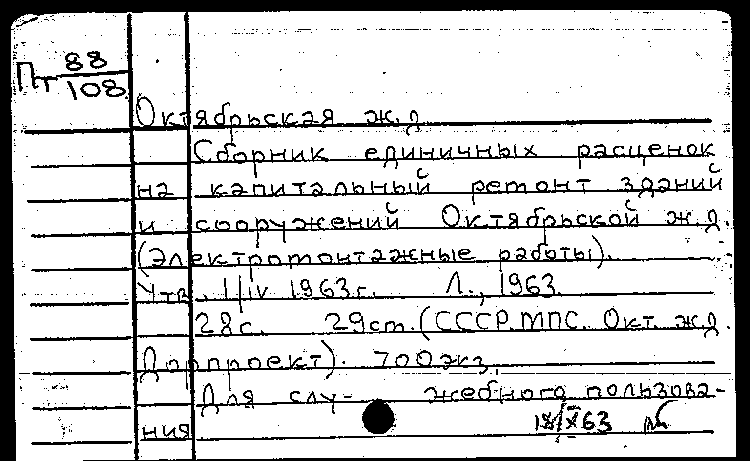 Пт 88/108
Октябрьская ж.д.
Сборник единичных расценок
на капитальный ремонт зданий
и сооружений Октябрьской ж.д.
(Электромонтажные работы).
Утв. 1/IV 1963г. Л., 1963
28с. 29см. (СССР. МПС. Окт. ж.д.
Дорпроект). 700экз.
Для слу- жебного пользова-
ния 18/X 63